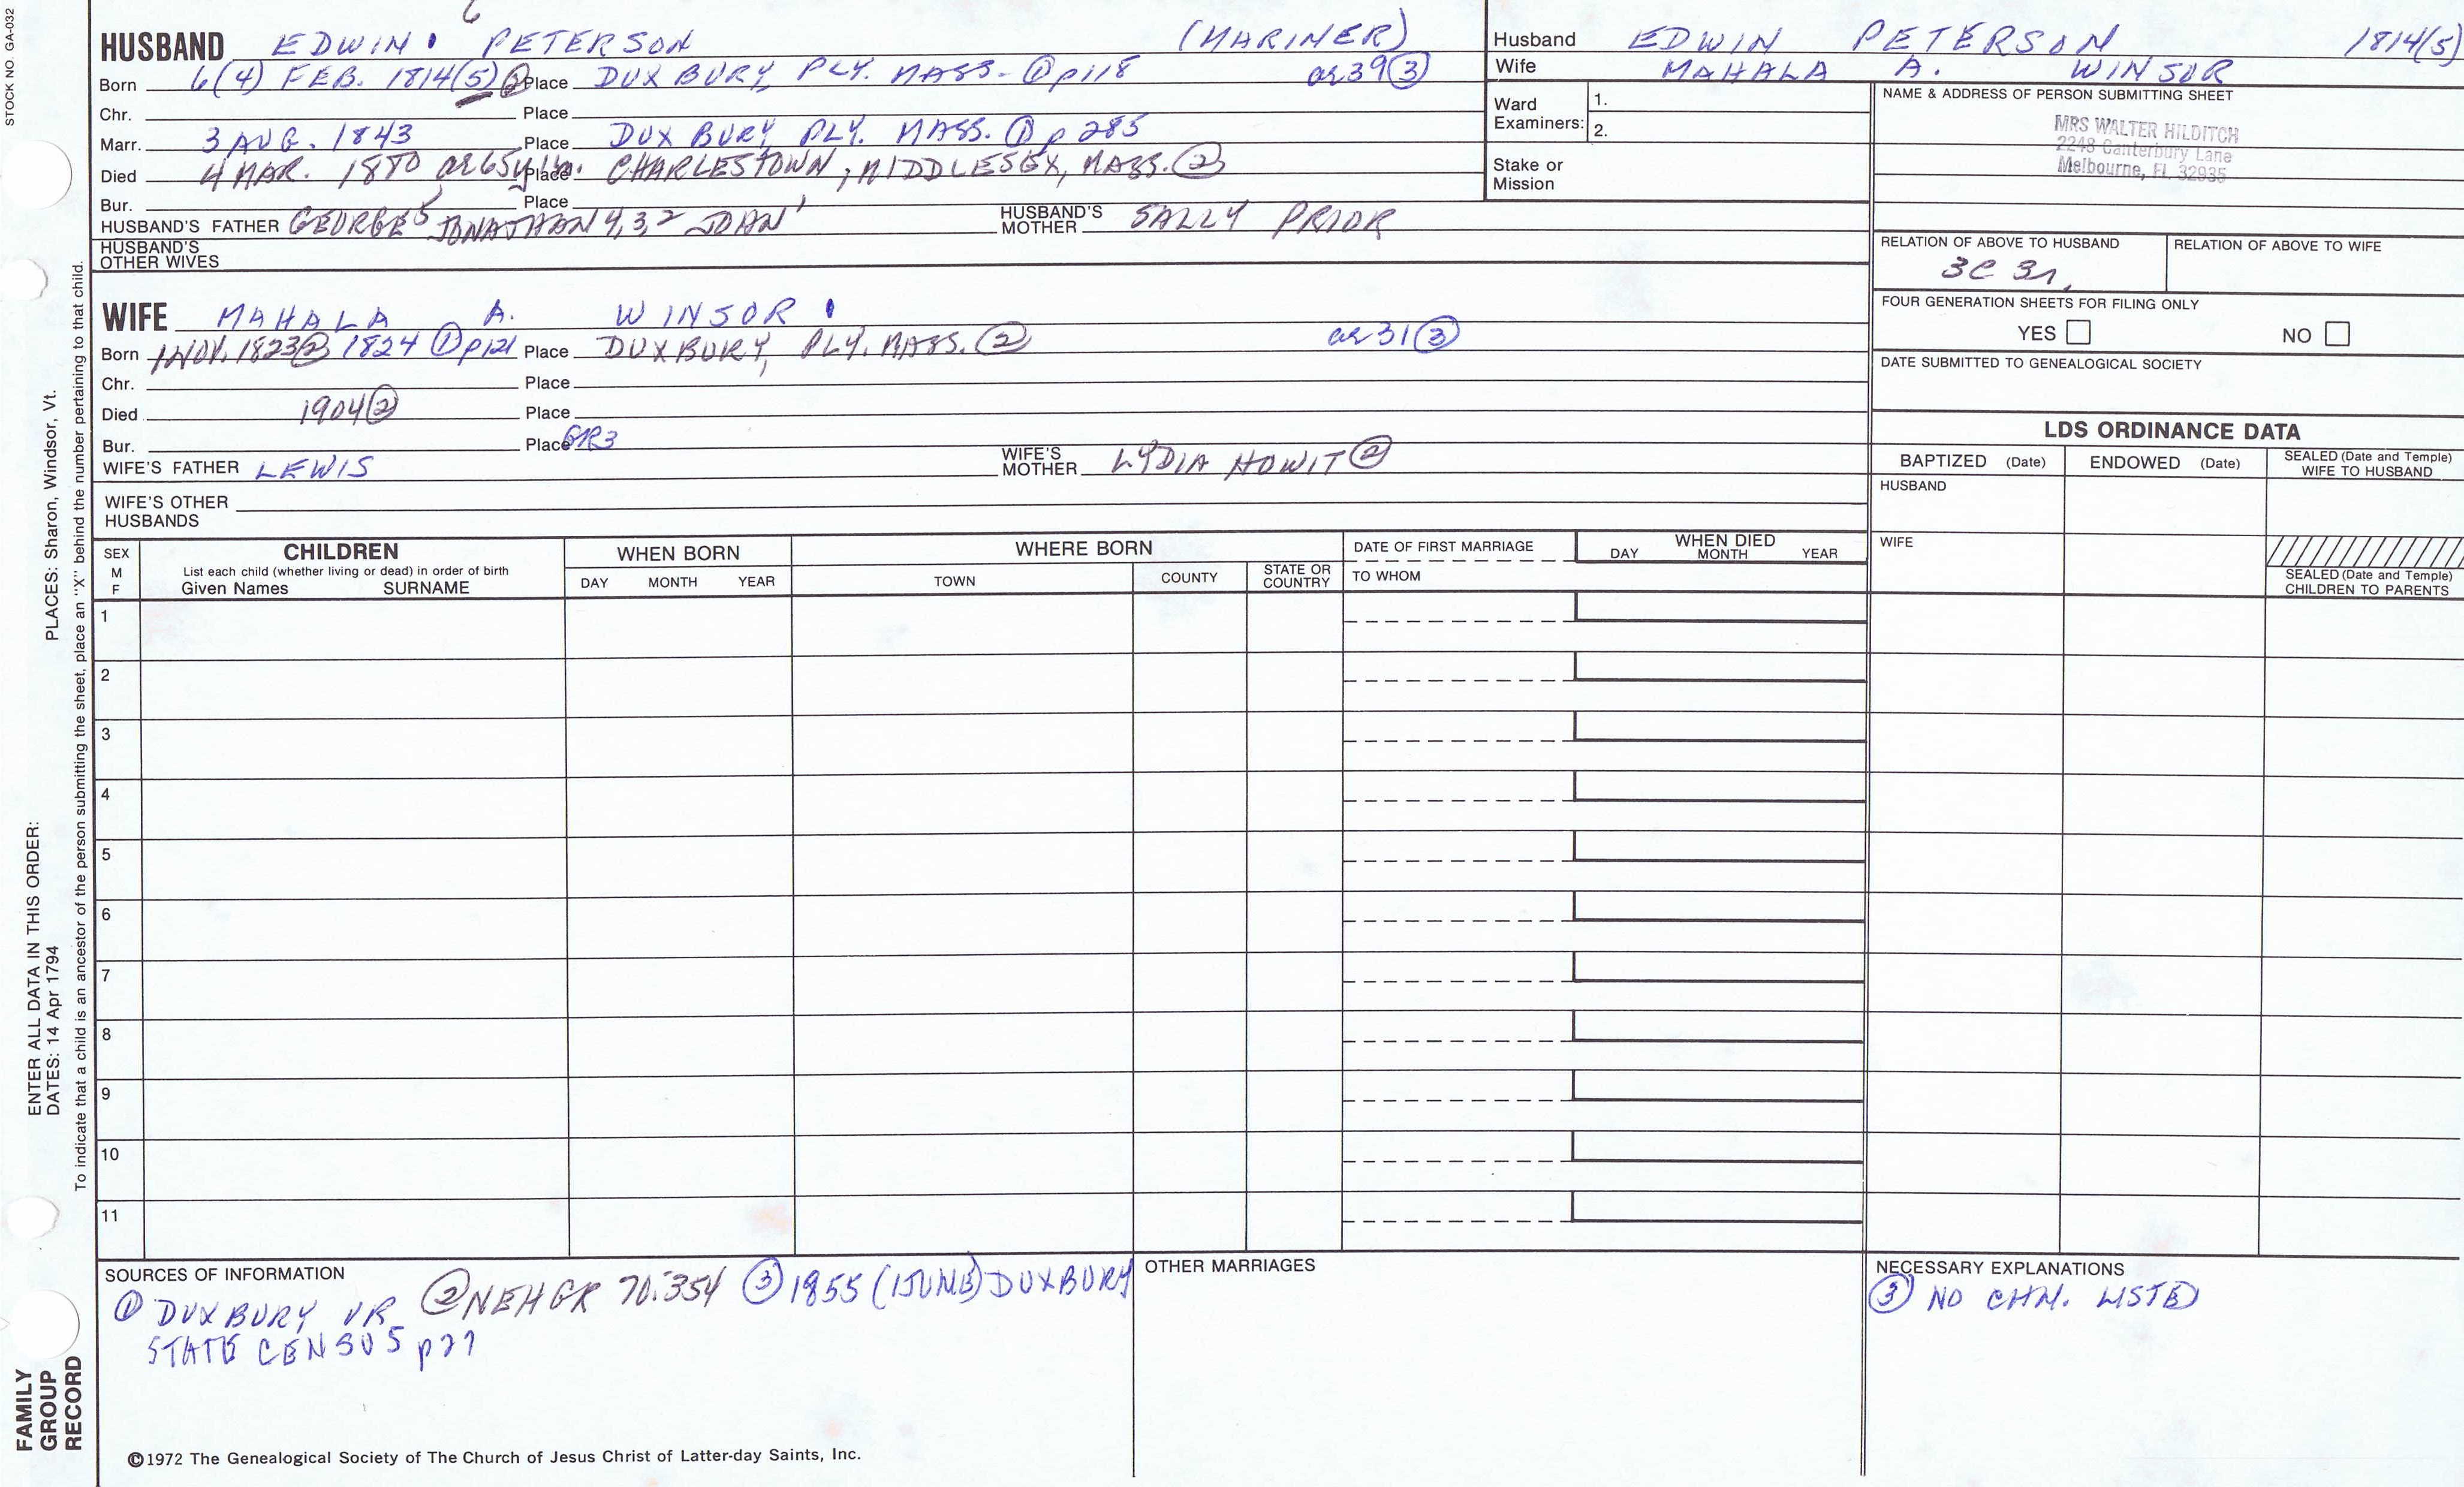 STOCK NO. GA-032
6
HUSBAND EDWIN PETERSON (MARINER)
Born 6(4) FEB. 1814(5) ② Place DUXBURY, PLY. MASS. ① p118 ae 39 ③
Chr. Place
Marr. 3 AUG. 1843 Place DUXBURY PLY. MASS. ① p 285
Died 4 MAR. 1880 ae 65y 1m. Place CHARLESTOWN, MIDDLESEX, MASS. ②
Bur. Place
HUSBAND'S FATHER GEORGE 5 JONATHAN 4,3,2 JOHN 1 HUSBAND'S MOTHER SALLY PRIOR
HUSBAND'S OTHER WIVES
WIFE MAHALA A. WINSOR
Born 1 NOV. 1823 ② 1824 ① p121 Place DUXBURY, PLY. MASS. ② ae 31 ③
Chr. Place
Died 1904 ② Place
Bur. Place GR3
WIFE'S FATHER LEWIS WIFE'S MOTHER LYDIA HOWIT ②
WIFE'S OTHER HUSBANDS
Husband EDWIN PETERSON 1814(5)
Wife MAHALA A. WINSOR
Ward Examiners: 1.
2.
Stake or Mission
NAME & ADDRESS OF PERSON SUBMITTING SHEET
MRS WALTER HILDITCH
2248 Canterbury Lane
Melbourne, FL 32935
RELATION OF ABOVE TO HUSBAND RELATION OF ABOVE TO WIFE
3C 3r.
FOUR GENERATION SHEETS FOR FILING ONLY
YES NO
DATE SUBMITTED TO GENEALOGICAL SOCIETY
LDS ORDINANCE DATA
BAPTIZED (Date) ENDOWED (Date) SEALED (Date and Temple) WIFE TO HUSBAND
HUSBAND
WIFE
SEALED (Date and Temple) CHILDREN TO PARENTS
SEX M F
CHILDREN
List each child (whether living or dead) in order of birth
Given Names SURNAME
WHEN BORN
DAY MONTH YEAR
WHERE BORN
TOWN COUNTY STATE OR COUNTRY
DATE OF FIRST MARRIAGE
TO WHOM
WHEN DIED
DAY MONTH YEAR
1
2
3
4
5
6
7
8
9
10
11
SOURCES OF INFORMATION
① DUXBURY VR ② NEHGR 70:354 ③ 1855 (1 JUNE) DUXBURY
STATE CENSUS p27
OTHER MARRIAGES
NECESSARY EXPLANATIONS
③ NO CHN. LISTED
©1972 The Genealogical Society of The Church of Jesus Christ of Latter-day Saints, Inc.
FAMILY GROUP RECORD
ENTER ALL DATA IN THIS ORDER:
DATES: 14 Apr 1794 PLACES: Sharon, Windsor, Vt.
To indicate that a child is an ancestor of the person submitting the sheet, place an "X" behind the number pertaining to that child.